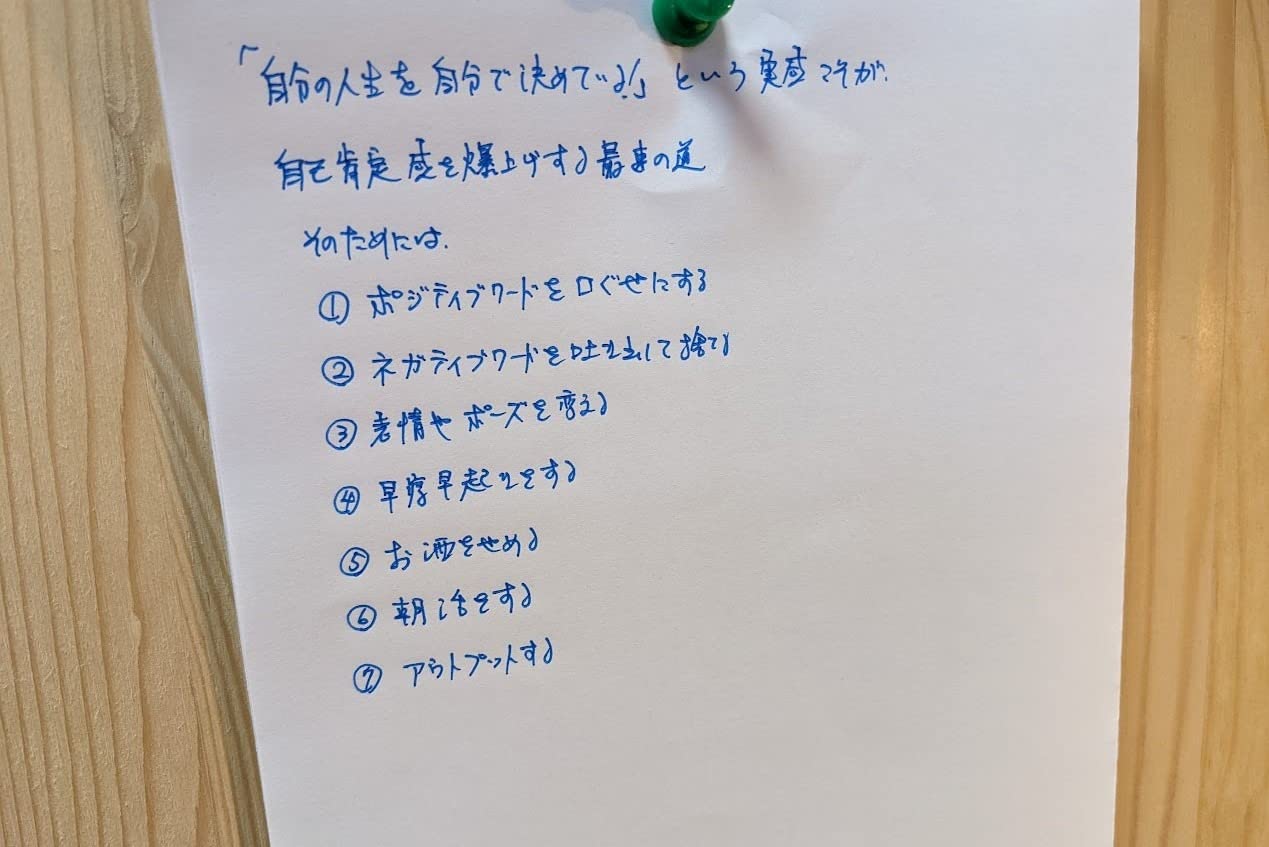 「自分の人生を自分で決めている!」という実感こそが、
自己肯定感を爆上げする最速の道
そのためには、
① ポジティブワードを口ぐせにする
② ネガティブワードを吐き出して捨てる
③ 表情やポーズを変える
④ 早寝早起きをする
⑤ お酒をやめる
⑥ 朝活をする
⑦ アウトプットする